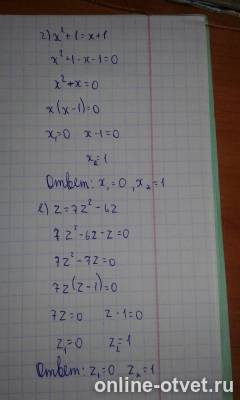 г) x²+1=x+1
x²+1-x-1=0
x²-x=0
x(x-1)=0
x₁=0 x-1=0
x₂=1
Ответ: x₁=0, x₂=1
е) z=7z²-6z
7z²-6z-z=0
7z²-7z=0
7z(z-1)=0
7z=0 z-1=0
z₁=0 z₂=1
Ответ: z₁=0, z₂=1
online-otvet.ru